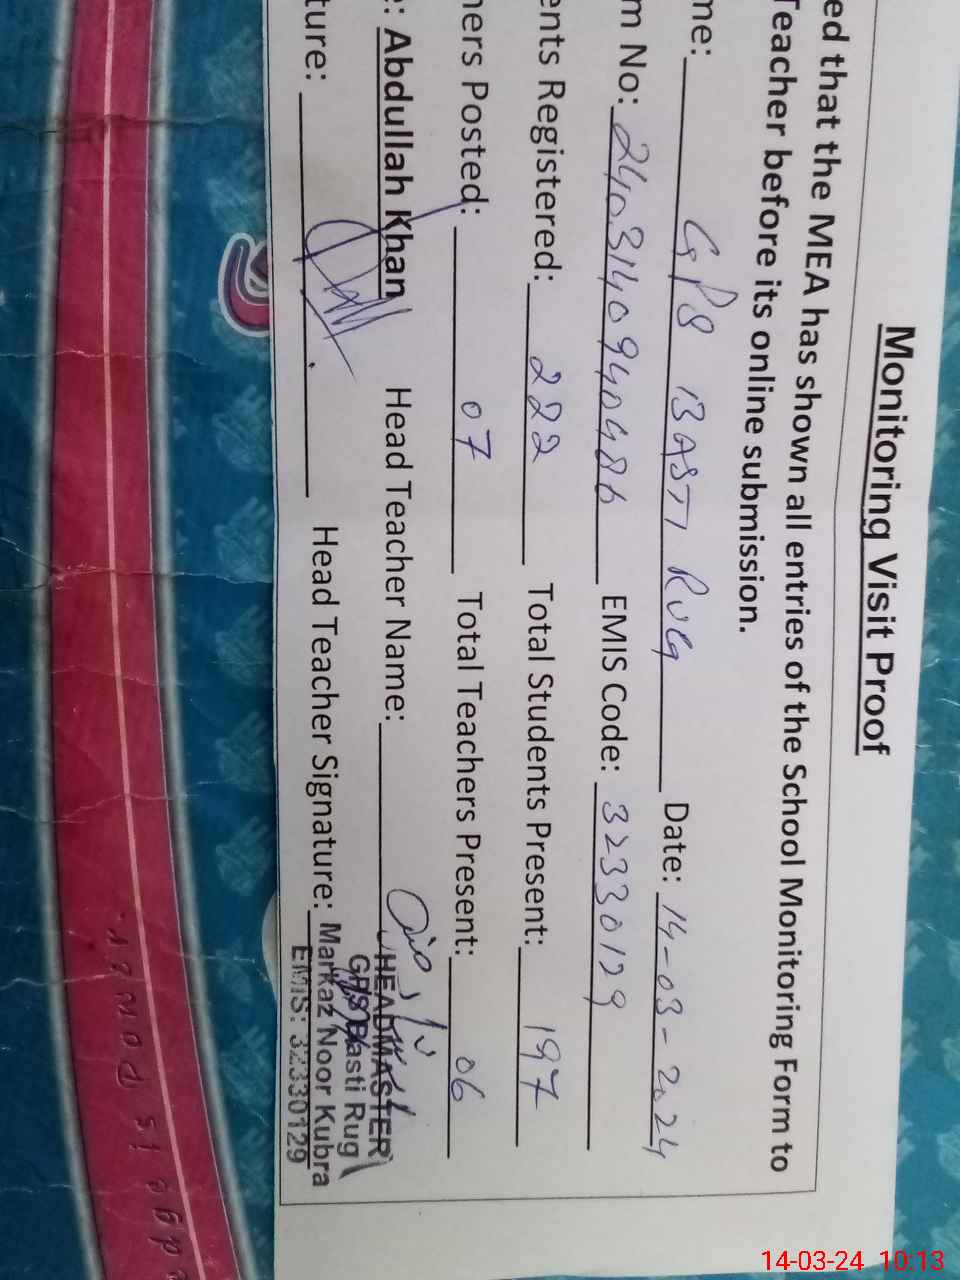 Monitoring Visit Proof
ed that the MEA has shown all entries of the School Monitoring Form to
Teacher before its online submission.
me: GPS BASTI RUG Date: 14-03-2024
m No: EMIS Code: 32330129
ents Registered: 222 Total Students Present: 197
hers Posted: 07 Total Teachers Present: 06
e: Abdullah Khan Head Teacher Name:
ture: Head Teacher Signature:
HEADMASTER
GPS Basti Rug
Markaz Noor Kubra
EMIS: 32330129
14-03-24 10:13